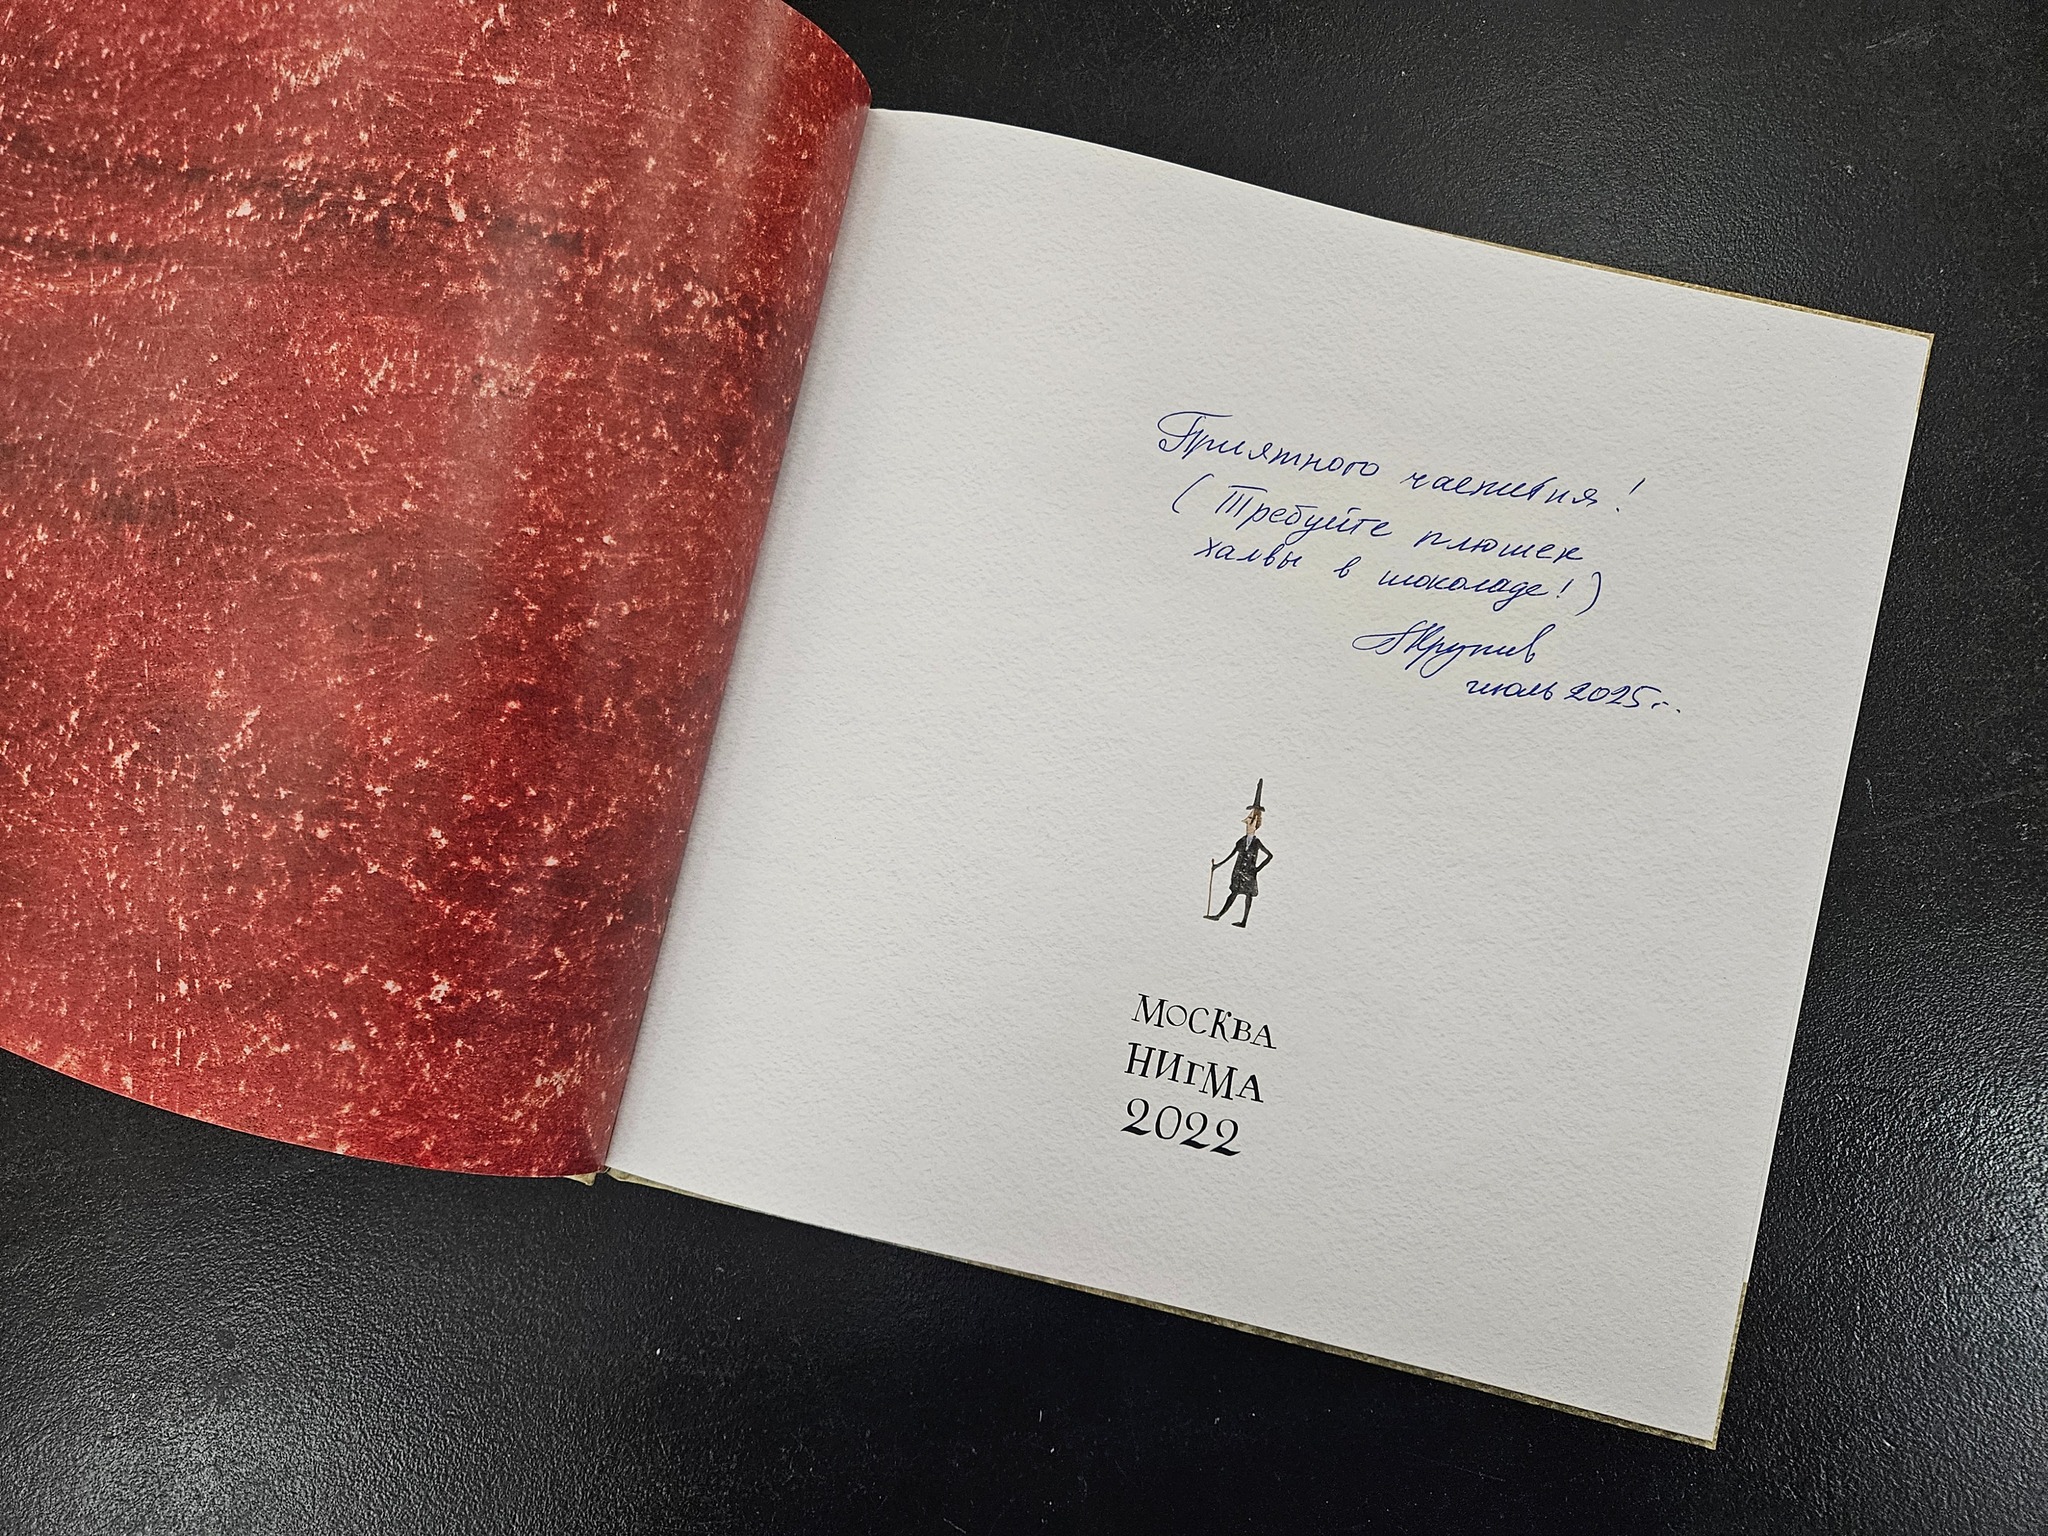 Приятного чаепития!
(Требуйте плюшек
халвы в шоколаде!)
июль 2025г.
МОСКВА
НИГМА
2022